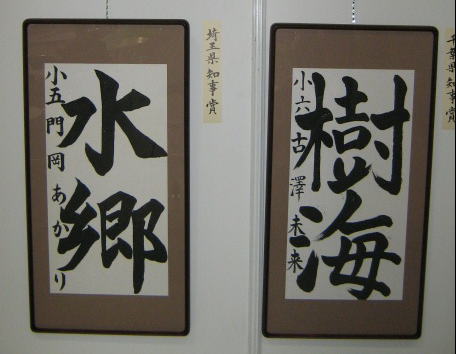 千葉県知事賞
樹海
小六 古澤未来
埼玉県知事賞
水郷
小五 門岡あかり